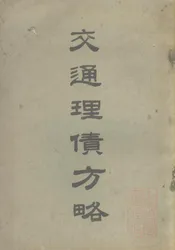 交通理債方略